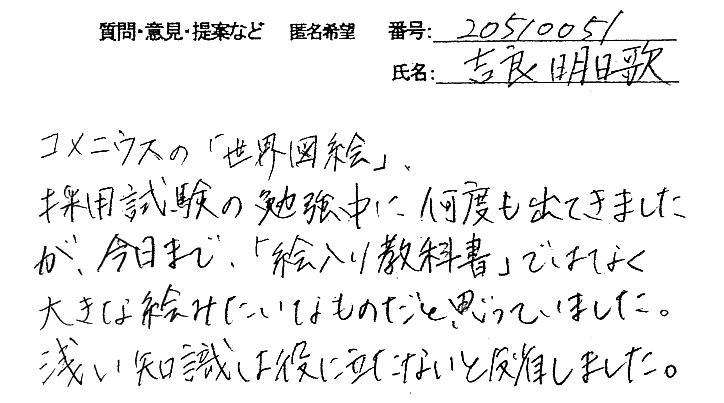 質問・意見・提案など 匿名希望 番号: 20510051
氏名: 吉良明日歌
コメニウスの「世界図絵」、
採用試験の勉強中に、何度も出てきました
が、今日まで、「絵入り教科書」ではなく
大きな絵みたいなものだと思っていました。
浅い知識は役に立たないと反省しました。